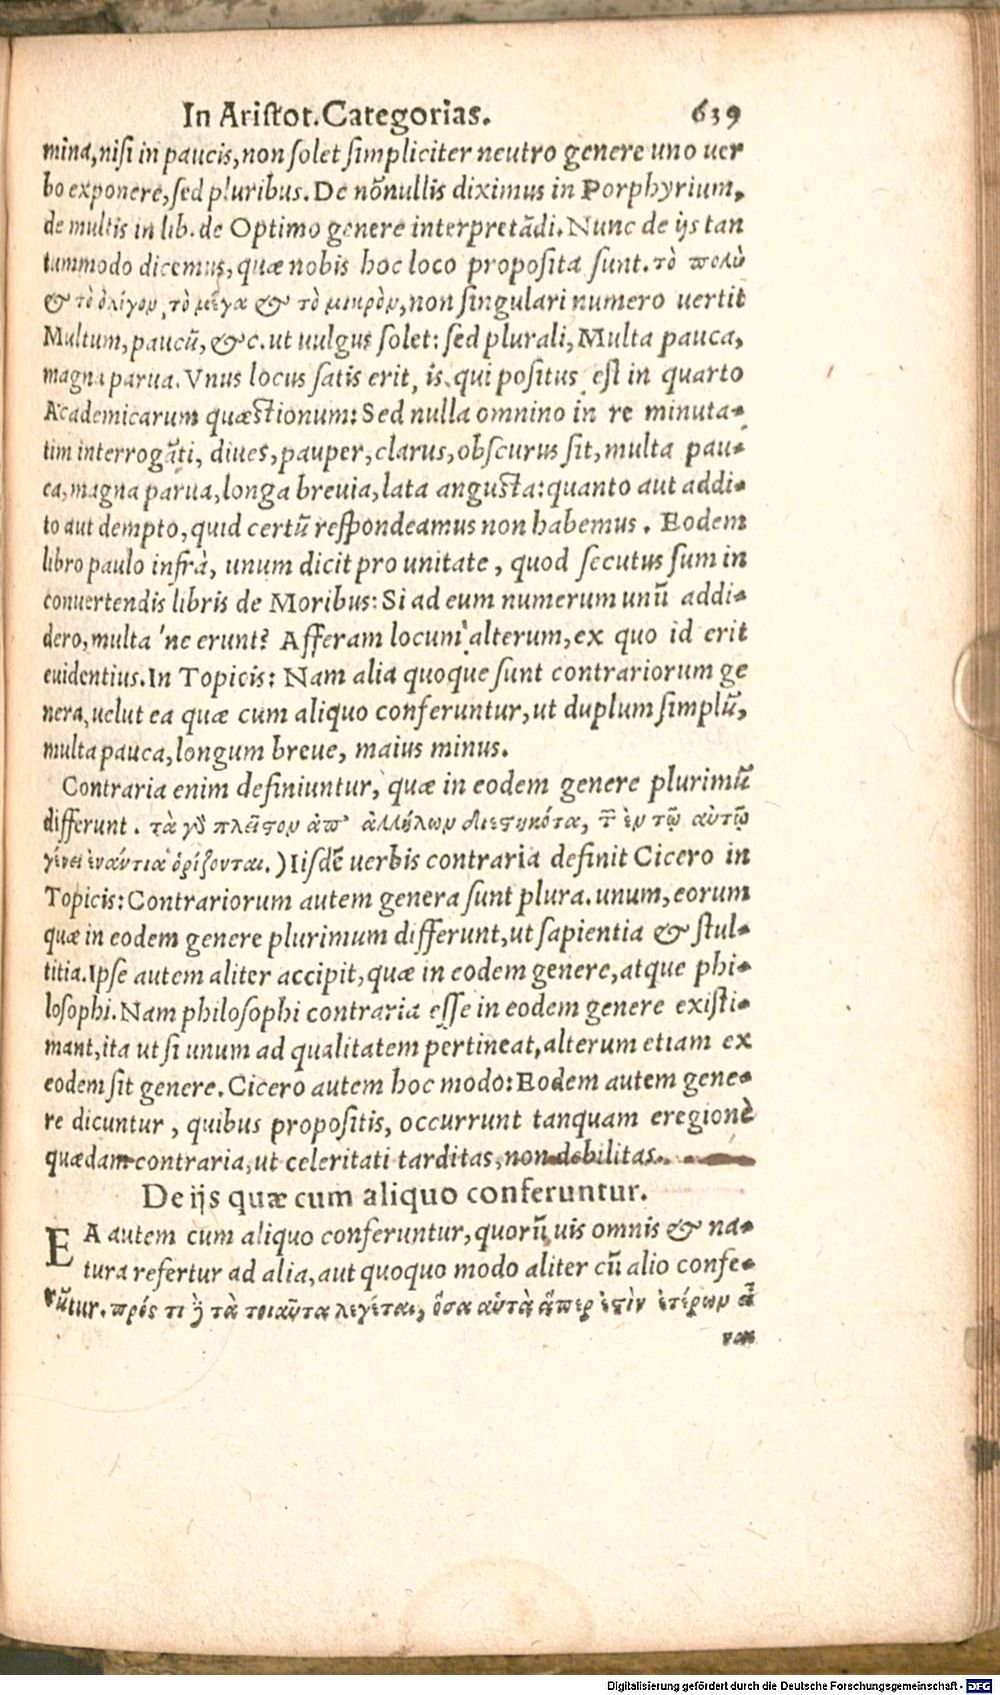 In Aristot. Categorias. 639
mina, nisi in paucis, non solet simpliciter neutro genere uno uer
bo exponere, sed pluribus. De nōnullis diximus in Porphyrium,
de multis in lib. de Optimo genere interpretādi. Nunc de ijs tan
tummodo dicemus, quæ nobis hoc loco proposita sunt. τὸ πολὺ
& τὸ ὀλίγον, τὸ μέγα & τὸ μικρὸν, non singulari numero uertit
Multum, paucū, &c. ut uulgus solet: sed plurali, Multa pauca,
magna parua. Vnus locus satis erit, is, qui positus est in quarto
Academicarum quæstionum: Sed nulla omnino in re minuta-
tim interrogāti, diues, pauper, clarus, obscurus sit, multa pau-
ca, magna parua, longa breuia, lata angusta: quanto aut addi-
to aut dempto, quid certū respondeamus non habemus. Eodem
libro paulo infrà, unum dicit pro unitate, quod secutus sum in
conuertendis libris de Moribus: Si ad eum numerum unū addi-
dero, multa 'ne erunt? Afferam locum alterum, ex quo id erit
euidentius. In Topicis: Nam alia quoque sunt contrariorum ge
nera, uelut ea quæ cum aliquo conferuntur, ut duplum simplū,
multa pauca, longum breue, maius minus.
Contraria enim definiuntur, quæ in eodem genere plurimū
differunt. τὰ γὸ πλεῖστον ἀπ' ἀλλήλων διεστηκότα, τ̄ ἐν τῷ αὐτῷ
γένει ἐναντία ὁρίζονται.) Iisdē uerbis contraria definit Cicero in
Topicis: Contrariorum autem genera sunt plura. unum, eorum
quæ in eodem genere plurimum differunt, ut sapientia & stul-
titia. Ipse autem aliter accipit, quæ in eodem genere, atque phi-
losophi. Nam philosophi contraria esse in eodem genere existi-
mant, ita ut si unum ad qualitatem pertineat, alterum etiam ex
eodem sit genere. Cicero autem hoc modo: Eodem autem gene-
re dicuntur, quibus propositis, occurrunt tanquam eregionè
quædam contraria, ut celeritati tarditas, non debilitas.
De ijs quæ cum aliquo conferuntur.
EA autem cum aliquo conferuntur, quorū uis omnis & na-
tura refertur ad alia, aut quoquo modo aliter cū alio confe-
rūtur. πρός τι ϳ τὰ τοιαῦτα λέγεται, ὅσα αὐτὰ ἅπερ ἐστὶν ἑτέρων εἶ
ναι
Digitalisierung gefördert durch die Deutsche Forschungsgemeinschaft - DFG